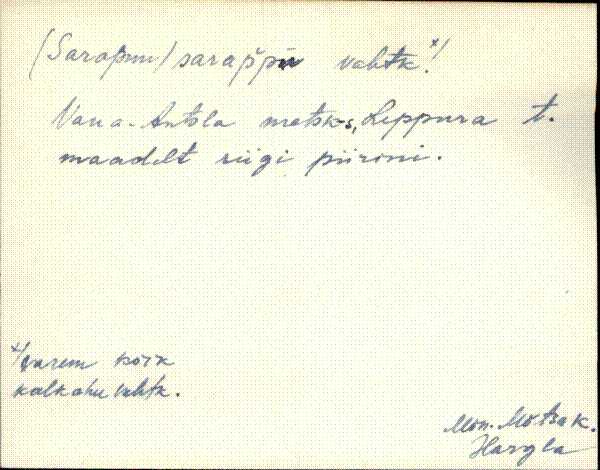 (Sarapuu) sarap̆pū vahtk. x)
Vana-Antsla metsk-s, Leppura t.
maadelt riigi piirini.
x) varem kõik
kalkahu vahtk.
Mõn. Mõtsak.
Hargla